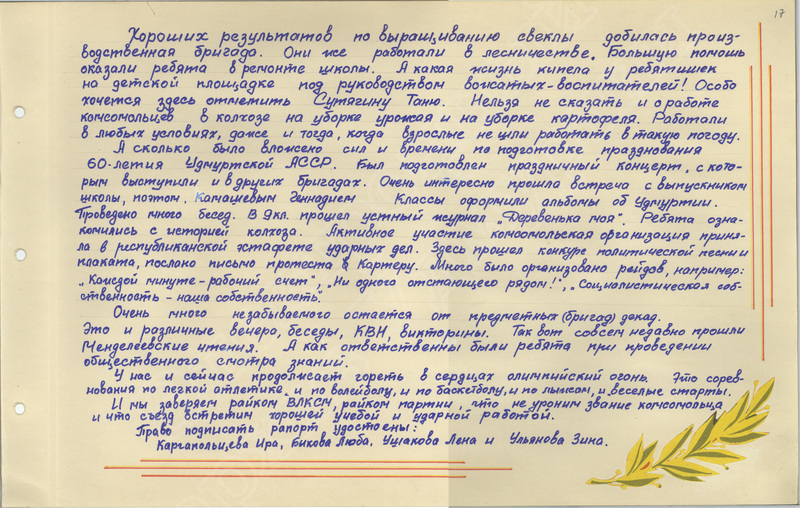 17
Хороших результатов по выращиванию свеклы добилась произ-
водственная бригада. Они же работали в лесничестве. Большую помощь
оказали ребята в ремонте школы. А какая жизнь кипела у ребятишек
на детской площадке под руководством вожатых-воспитателей! Особо
хочется здесь отметить Сутягину Таню. Нельзя не сказать и о работе
комсомольцев в колхозе на уборке урожая и на уборке картофеля. Работали
в любых условиях, даже и тогда, когда взрослые не шли работать в такую погоду.
А сколько было вложено сил и времени по подготовке празднования
60-летия Удмуртской АССР. Был подготовлен праздничный концерт, с кото-
рым выступили и в других бригадах. Очень интересно прошла встреча с выпускником
школы, поэтом. Камашевым Геннадием Классы оформили альбомы об Удмуртии.
Проведено много бесед. В 9 кл. прошел устный журнал „Деревенька моя". Ребята озна-
комились с историей колхоза. Активное участие комсомольская организация приня-
ла в республиканской эстафете ударных дел. Здесь прошел конкурс политической песни и
плаката, послано письмо протеста Картеру. Много было организовано рейдов, например:
„Каждой минуте - рабочий счет", „Ни одного отстающего рядом!", „Социалистическая соб-
ственность - наша собственность".
Очень много незабываемого остается от предметных (бригад) декад.
Это и различные вечера, беседы, КВН, викторины. Так вот совсем недавно прошли
Менделеевские чтения. А как ответственны были ребята при проведении
общественного смотра знаний.
У нас и сейчас продолжает гореть в сердцах олимпийский огонь. Это сорев-
нования по легкой атлетике и по волейболу, и по баскетболу, и по лыжам и веселые старты.
И мы заверяем райком ВЛКСМ, райком партии, что не уроним звание комсомольца
и что съезд встретим хорошей учебой и ударной работой.
Право подписать рапорт удостоены:
Каргапольцева Ира, Бикова Люба, Ушакова Лена и Ульянова Зина.